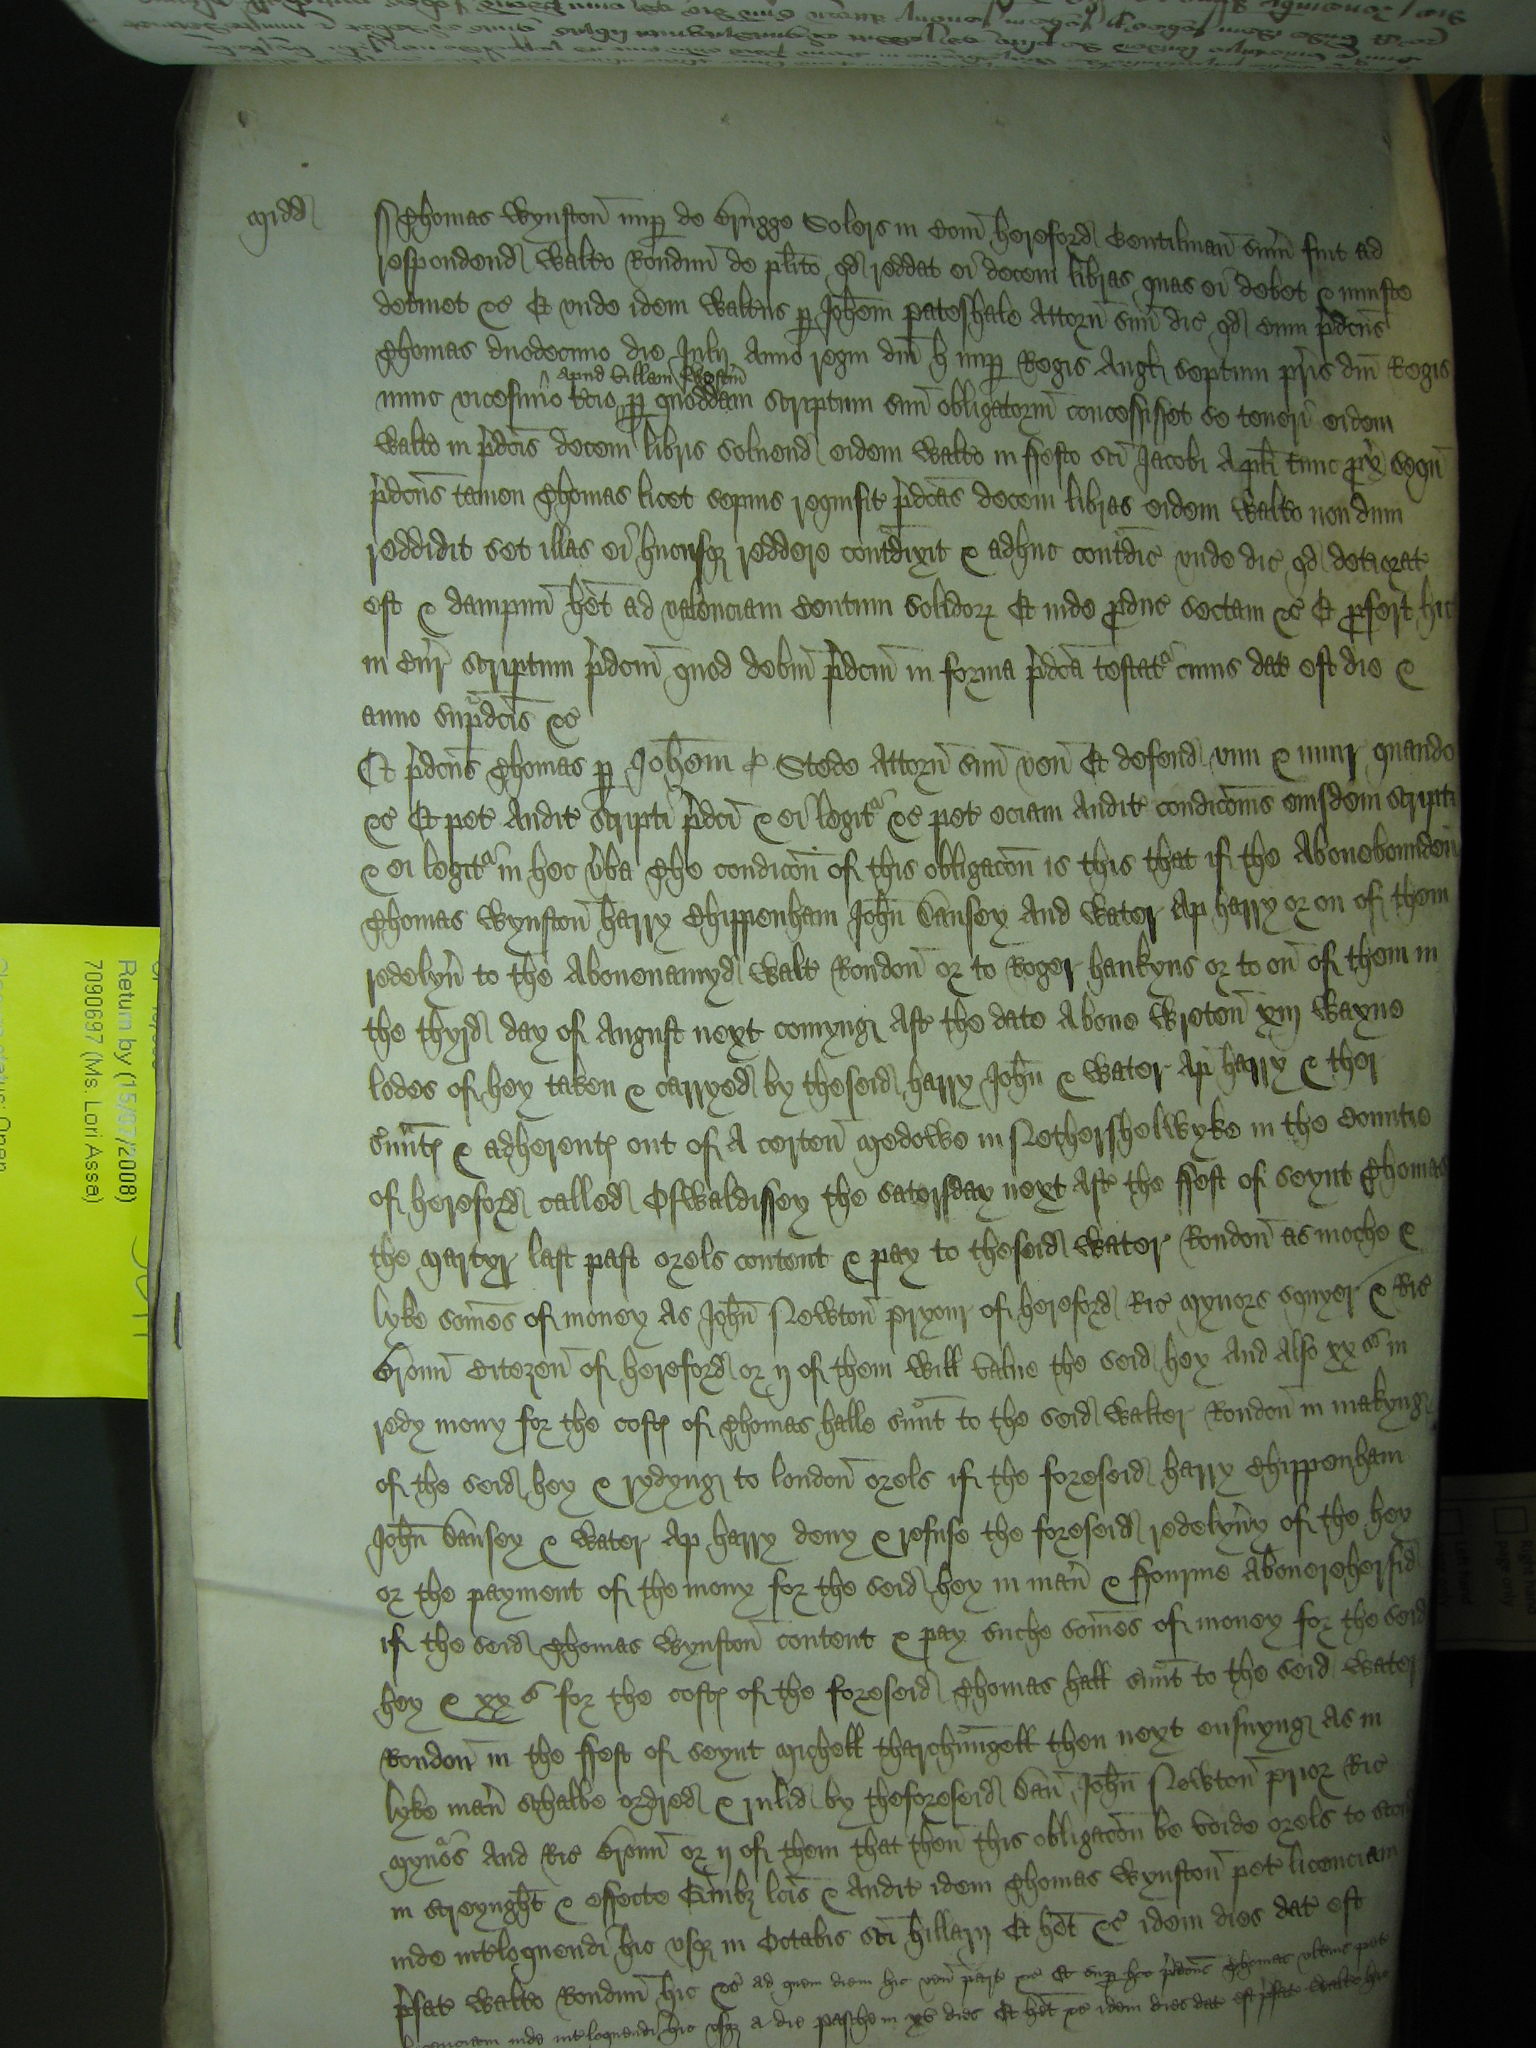 Midd
Thomas Wynston nup de Brugge Solers in Com Hereford Gentilman sum fuit ad
respondend Walto Rondun de plito qd reddat ei decem libras quas ei debet & iniuste
detinet &c Et unde idem Waltus p Johem Pateshale Attorn suu dic qd cum pdcus
Thomas duodecimo die Julii Anno regni dni H nup Regis Angl septimi pris dni Regis
apud Villam Westm
nunc vicesimo tcio p quoddam scriptum suu obligatoriu concessisset se teneri eidem
Walto in pdcis decem libris solvend eidem Walto in ffesto sci Jacobi Apli tunc px sequ
pdcus tamen Thomas licet sepius requisit pdcas decem libras eidem Walto nondum
reddidit set illas ei hucusq reddere contdixit & adhuc contdic unde dic qd detiorat
est & dampnu het ad valenciam Centum solidor Et inde pduc sectam &c Et pfert hic
in Cur scriptum pdcm quod debitu pdcm in forma pdca testat cuius dat est die &
anno supadcis &c
Et pdcus Thomas p Johem Stede Attorn suu ven Et defend vim & iniur quando
&c Et pet Audit scripti pdci & ei legit &c pet eciam Audit condicois eiusdem scripti
& ei legit in hec vba The condicon of this obligacon is this that if the Abovebounden
Thomas Wynston Harry Chippenham John Dansey And Water Ap Harry or on of them
redelyv to the Abovenamyd Walt Rondon or to Roger Hankyns or to on of them in
the thyrd day of August next comyng Aft the date Above Wreton xiij Wayne
lodes of hey taken & carryed by theseid Harry John & Water Ap Harry & ther
svunt & adherent out of A certen Medowe in Nethershelwyke in the Countie
of Hereford called Oswaldissey the satersday next Aft the ffest of seynt Thomas
the Martyr last past orels content & pay to theseid Water Rondon as moche &
lyke somes of money As John Newton pryour of Hereford Ric Mynors squyer & Ric
Bronn Citezen of Hereford or ij of them will value the seid hey And Also xx s in
redy mony for the cost of Thomas Halle svunt to the seid Walter Rondon in makyng
of the seid hey & rydyng to london orels if the foreseid Harry Chippenham
John Dansey & Water Ap Harry deny & refuse the foreseid redelyvy of the hey
or the payment of the mony for the seid hey in man & ffourme Aboverehersid
if the seid Thomas Wynston content & pay suche somes of money for the seid
hey & xx s for the cost of the foreseid Thomas Hall svunt to the seid Water
Rondon in the ffest of seynt Michell tharchungell then next ensuyng As in
lyke man shalbe ordred & rulid by theforeseid Dan John Newton prior Ric
Mynors And Ric Bronn or ij of them that then this obligacon be voide orels to stond
in streynght & effecte Quibz lcis & Audit idem Thomas Wynston pet licenciam
inde intloquendi hic usq in Octabis sci Hillarii Et het &c idem dies dat est
pfat Walto Rondun hic &c ad quem diem hic ven part &c Et sup hoc pdcus Thomas ulterius pet
licenciam inde intloquendi hic usq a die pasche in xv dies Et het &c idem dies dat est pfat Walto hic
Return by (15/07/2008)
7090697 (Ms. Lori Assa)